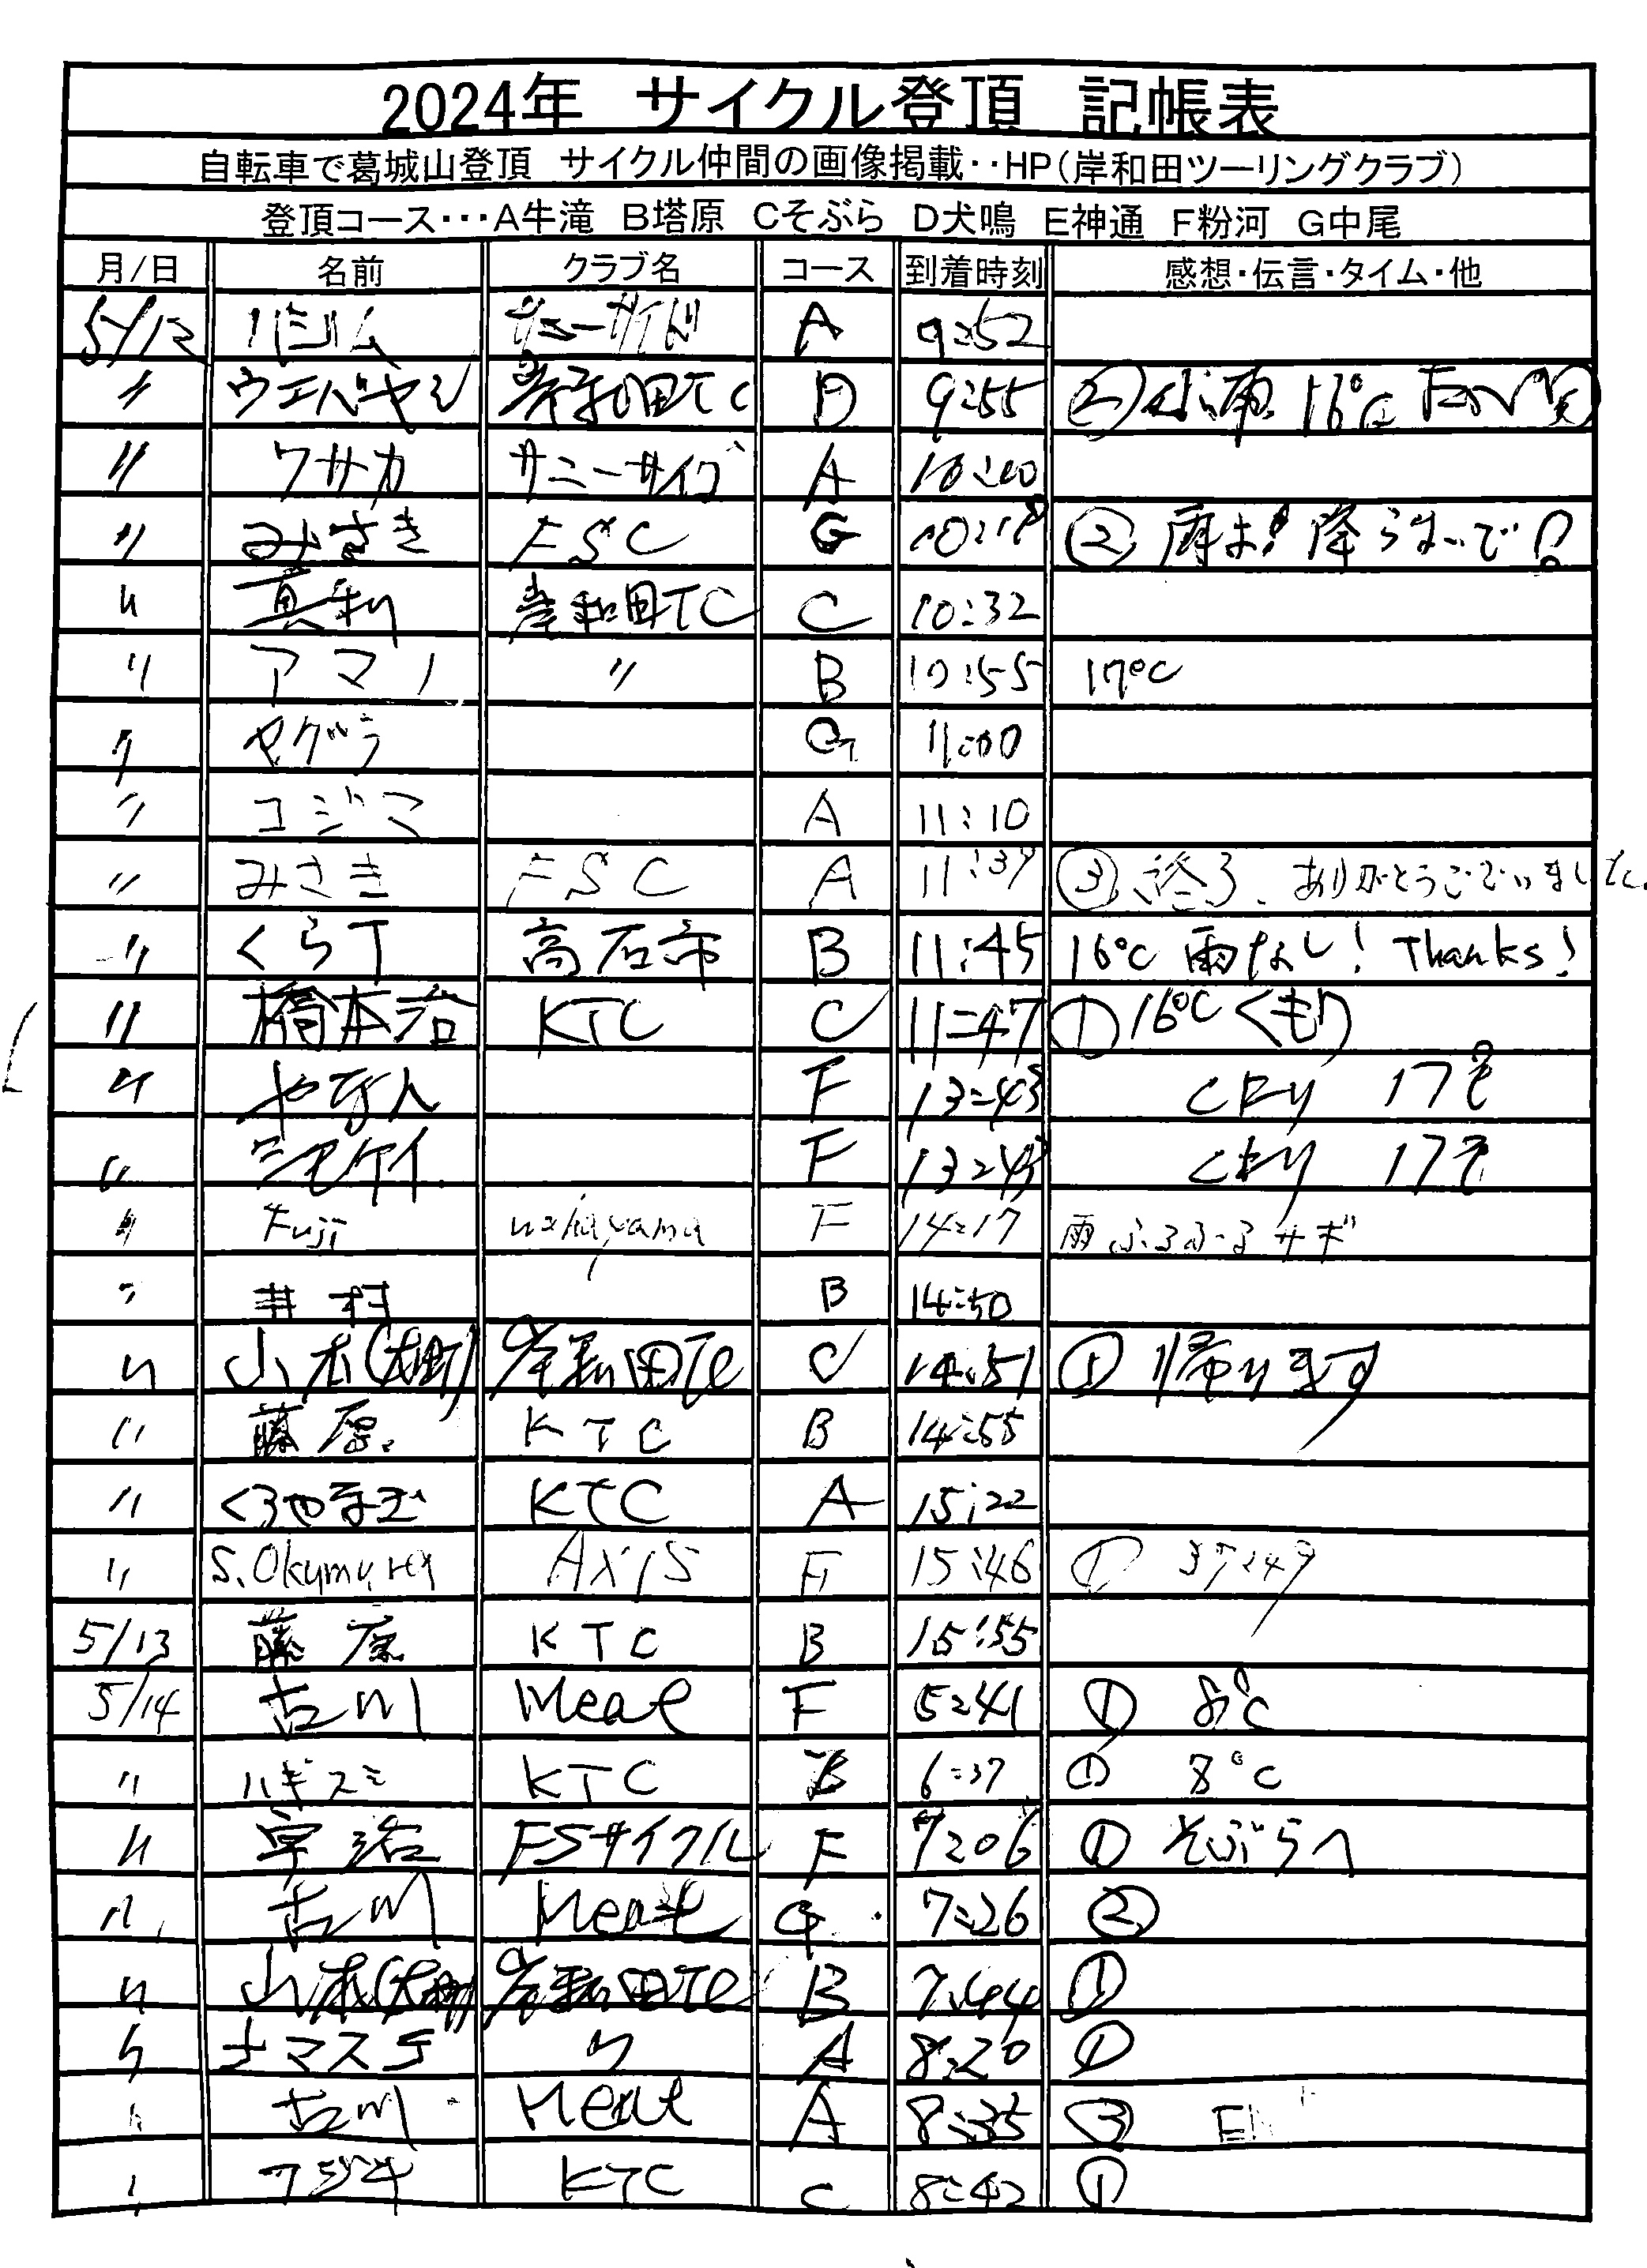 2024年 サイクル登頂 記帳表
自転車で葛城山登頂 サイクル仲間の画像掲載‥HP(岸和田ツーリングクラブ)
登頂コース・・・A牛滝 B塔原 Cそぶら D犬鳴 E神通 F粉河 G中尾
月/日 名前 クラブ名 コース 到着時刻 感想・伝言・タイム・他
5/12 ハジム サニーサイド A 9:52
〃 ウエバヤシ 岸和田TC D 9:55 ② 小雨 16℃
〃 ワサカ サニーサイド A 10:00
〃 みさき FSC G 10:18 ② 雨ま! 降らないで!
〃 真利 岸和田TC C 10:32
〃 アマノ 〃 B 10:55 17℃
〃 ヤグラ G 11:00
〃 コジマ A 11:10
〃 みさき FSC A 11:39 ③ 終了. ありがとうございました.
〃 くらT 高石市 B 11:45 16℃ 雨なし! Thanks!
〃 橋本治 KTC C 11:47 ① 16℃ くもり
〃 やなん F 13:43 くもり 17℃
〃 シモケイ F 13:43 くもり 17℃
〃 Fuji wakayama F 14:17 雨ふるふるサギ
〃 井村 B 14:50
〃 山本(大樹) 岸和田TC C 14:51 ① 帰ります
〃 藤原 KTC B 14:55
〃 くろやまだ KTC A 15:22
〃 S.Okumura AXIS F 15:46 ① 37:49
5/13 藤原 KTC B 15:55
5/14 古川 Meat F 5:41 ① 8℃
〃 ハギスミ KTC B 6:37 ① 8℃
〃 宇治 FSサイクル F 7:06 ① そぶらへ
〃 古川 Meat G 7:26 ②
〃 山本(大樹) 岸和田TC B 7:44 ①
〃 ナマステ 〃 A 8:20 ①
〃 古川 Meat A 8:35 ③
〃 フジキ KTC C 8:42 ①